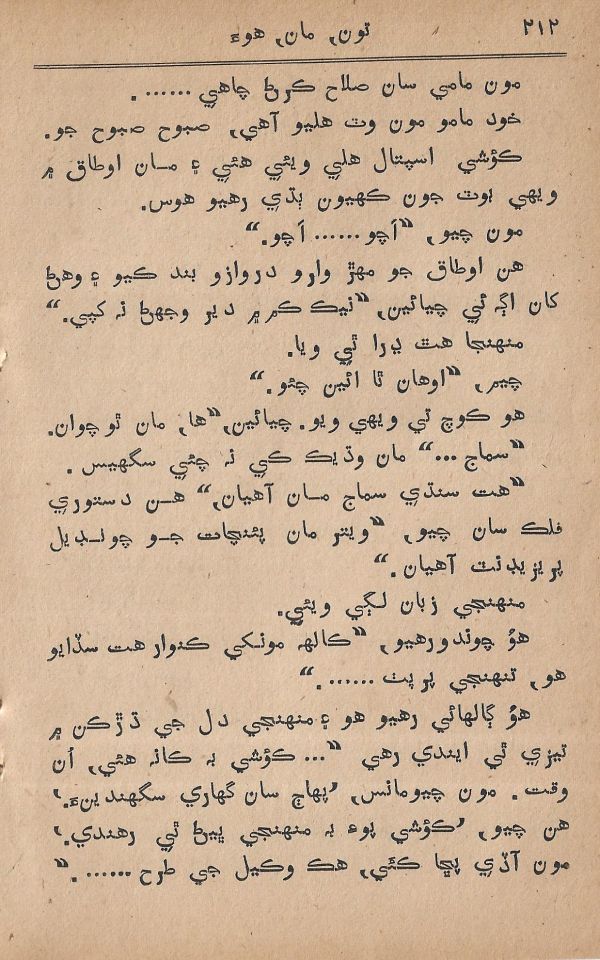 تون، مان، هوءَ ۲۱۲
مون مامي سان صلاح ڪرڻ چاهي...... .
خود مامو مون وٽ هليو آهي، صبوح صبوح جو.
ڪؤشي اسپتال هلي ويئي هئي ۽ مـان اوطاق ۾
ويهي بوٽ جون ڪهيون ٻڌي رهيو هوس.
مون چيو، ”اَچو...... اَچو.“
هن اوطاق جو مهڙ وارو دروازو بند ڪيو ۽ وهڻ
کان اڳ ئي چيائين، ”نيڪ ڪم ۾ دير وجهڻ نہ کپي.“
منهنجا هٿ ڍرا ٿي ويا.
چيم، ”اوهان ٿا ائين چئو.“
هو ڪوچ تي ويهي ويو. چيائين،”ها، مان ٿو چوان.
”سماج ...“ مان وڌيڪ ڪي نہ چئي سگهيس .
”هت سنڌي سماج مـان آهيان،“ هـن دستوري
فلڪ سان چيو، ”ويتر مان پئنچات جـو چونـڊيل
پريزيڊنٽ آهيان.“
منهنجي زبان لڳي ويئي.
هوُ چوندو رهيو، ”ڪالهہ مونکي ڪنوار هت سڏايو
هو، تنهنجي پر پٺ ...... .“
هوُ ڳالهائي رهيو هو ۽ منهنجي دل جي ڌڙڪن ۾
تيزي ٿي ايندي رهي ”... ڪؤشي بہ ڪانہ هئي، اُن
وقت. مون چيومانس، ’پهاڄ سان گهاري سگهندينءَ.‘
هن چيو، ’ڪؤشي پوءِ بہ منهنجي ڀيڻ ٿي رهندي.‘
مون آڏي پڇا ڪئي، هڪ وڪيل جي طرح ...... .“